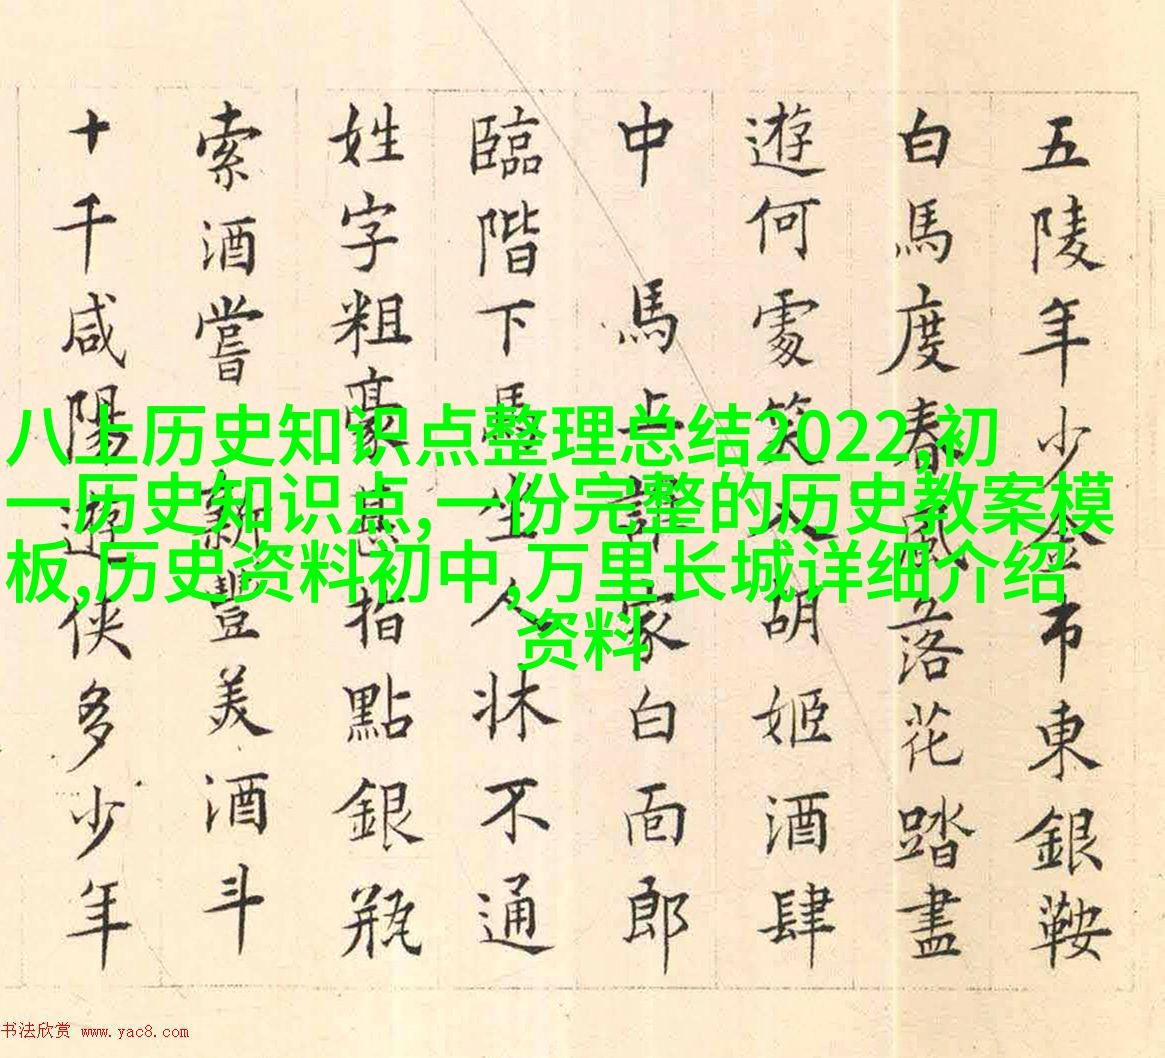 五陵年少金市東銀鞍
白馬度春風落花踏盡
遊何處笑入胡姬酒肆
中 馬上誰家白面郎
臨階下馬坐人牀不通
姓字粗豪甚指點銀瓶
索酒嘗 新豐美酒斗
十千咸陽遊俠多少年
八上历史知识点整理总结2022,初
一历史知识点,一份完整的历史教案模
板,历史资料初中,万里长城详细介绍
资料
书法欣赏 www.yac8.com